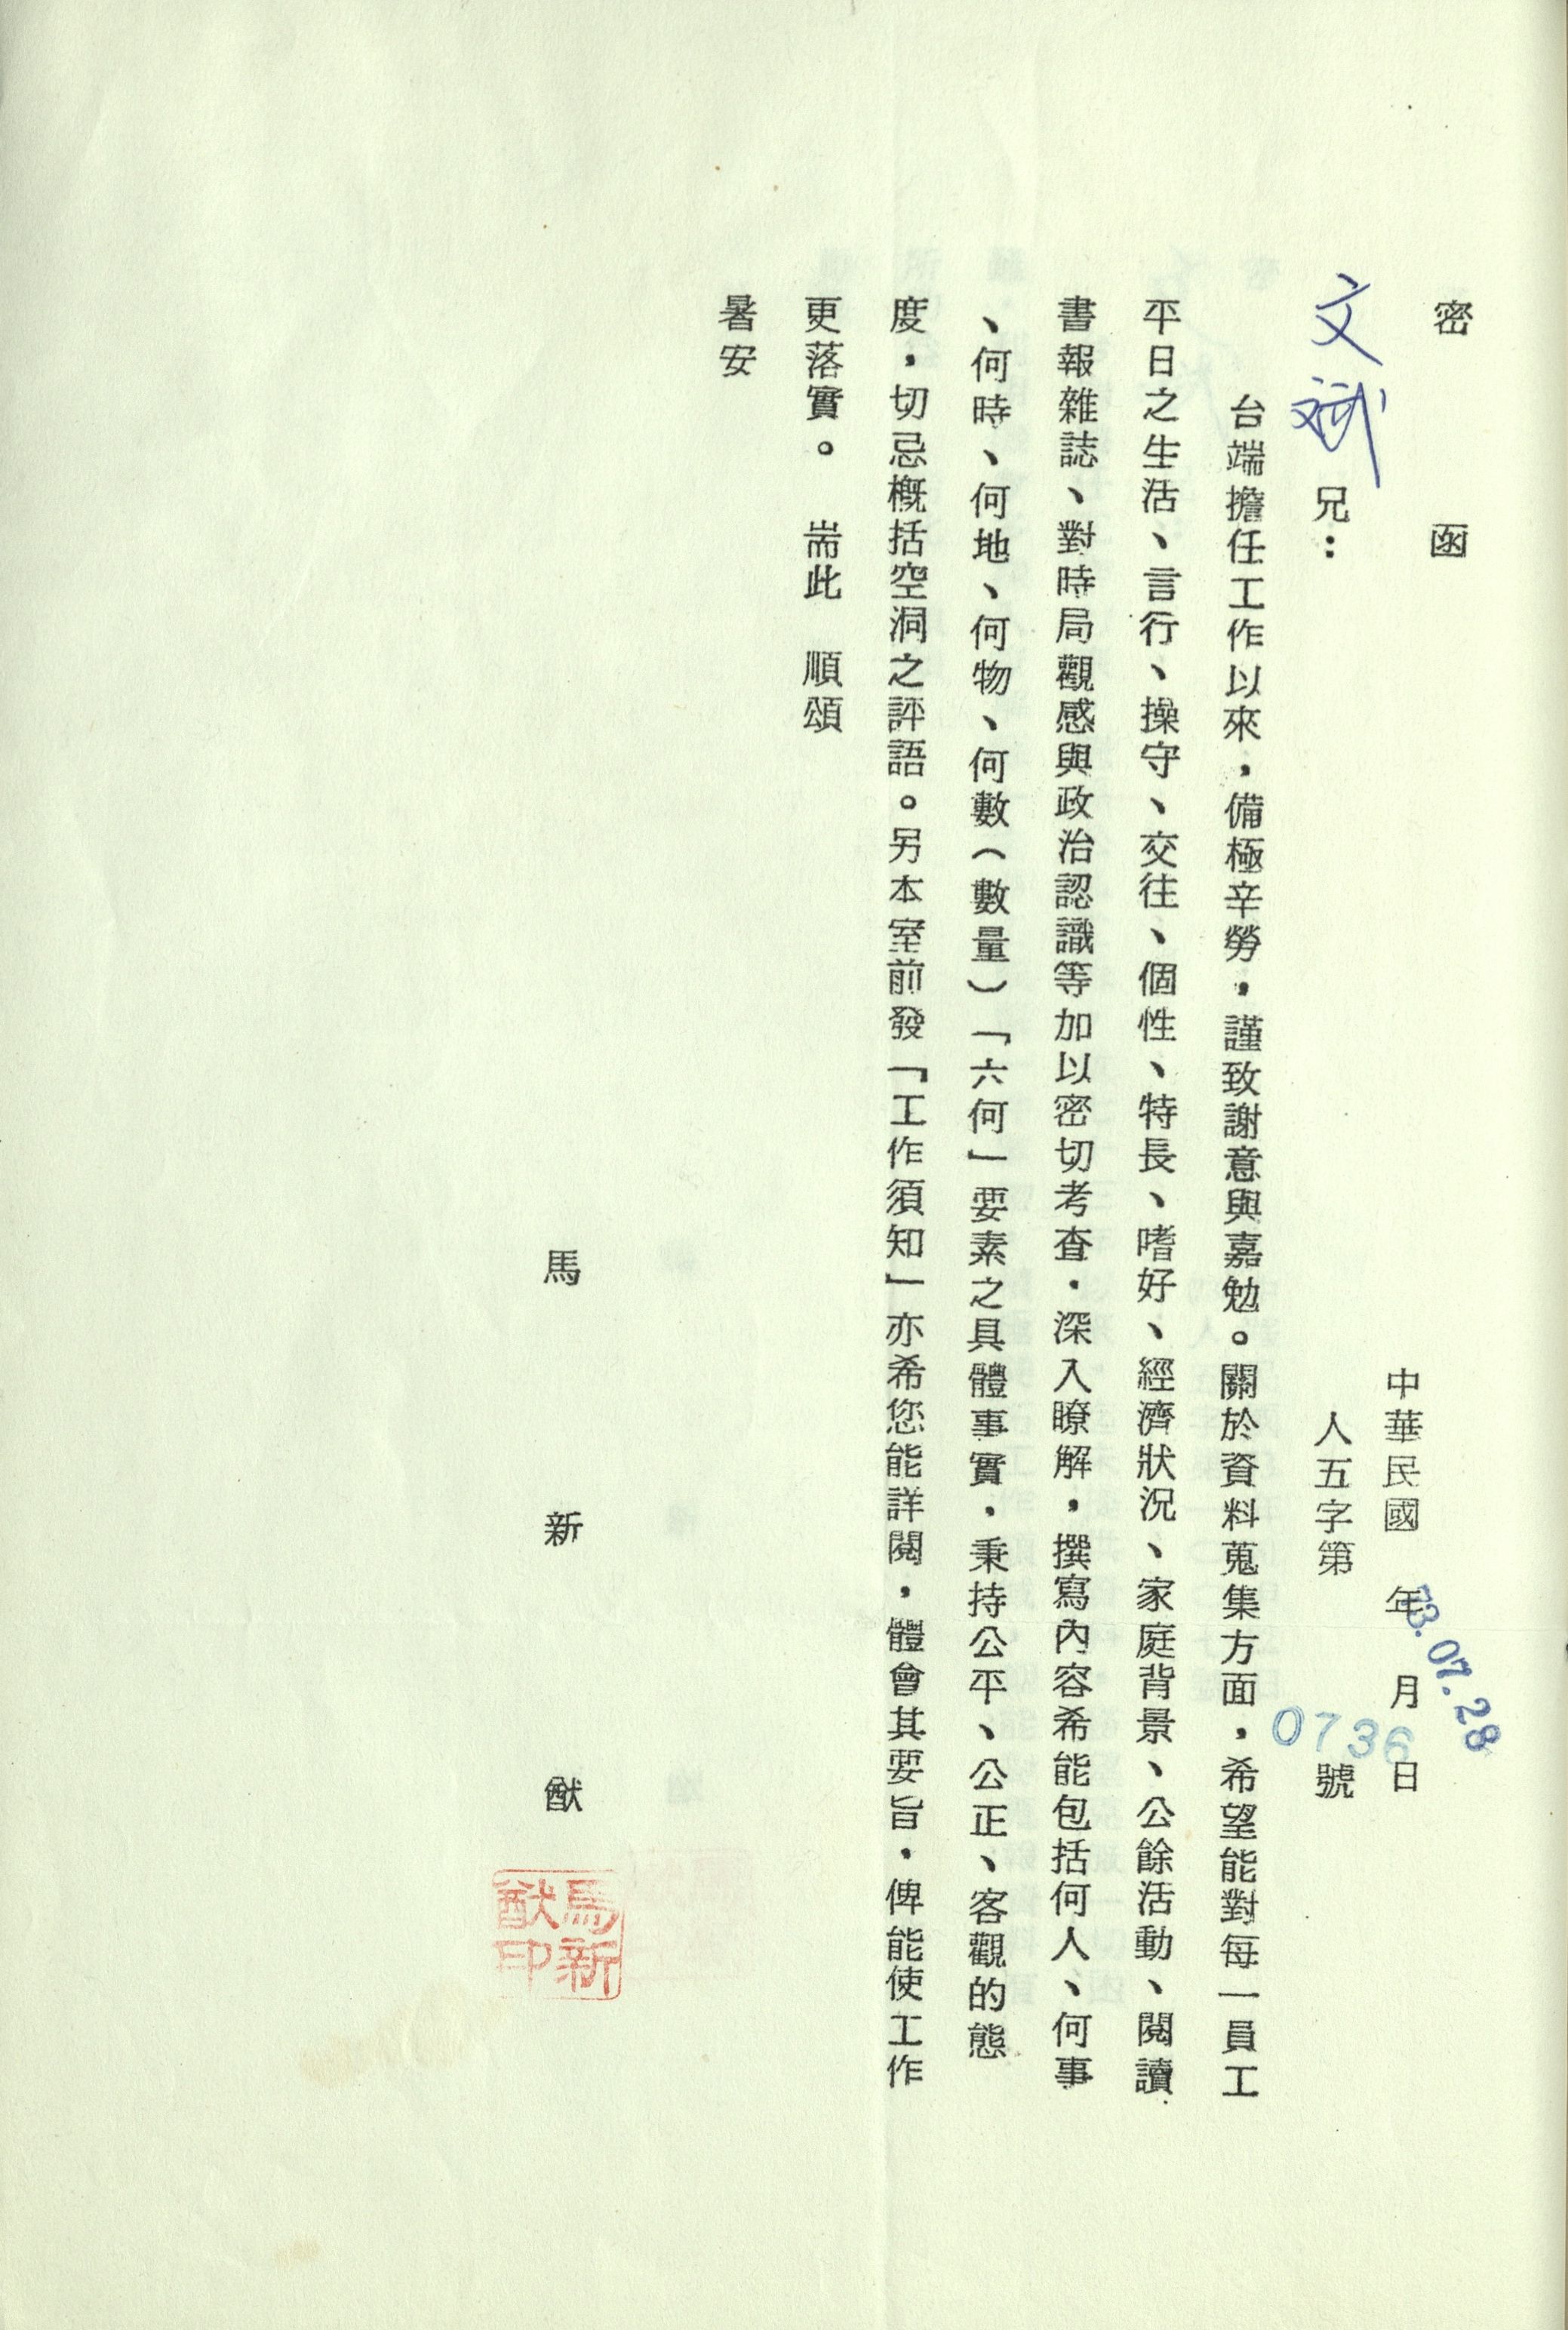 密函
中華民國 年 月 日
73.07.28
人五字第 號
0736
文斌兄：
台端擔任工作以來，備極辛勞，謹致謝意與嘉勉。關於資料蒐集方面，希望能對每一員工
平日之生活、言行、操守、交往、個性、特長、嗜好、經濟狀況、家庭背景、公餘活動、閱讀
書報雜誌、對時局觀感與政治認識等加以密切考查．深入瞭解，撰寫內容希能包括何人、何事
、何時、何地、何物、何數（數量）「六何」要素之具體事實．秉持公平、公正、客觀的態
度，切忌概括空洞之評語。另本室前發「工作須知」亦希您能詳閱，體會其要旨．俾能使工作
更落實。 耑此 順頌
暑安
馬新猷
馬新猷印